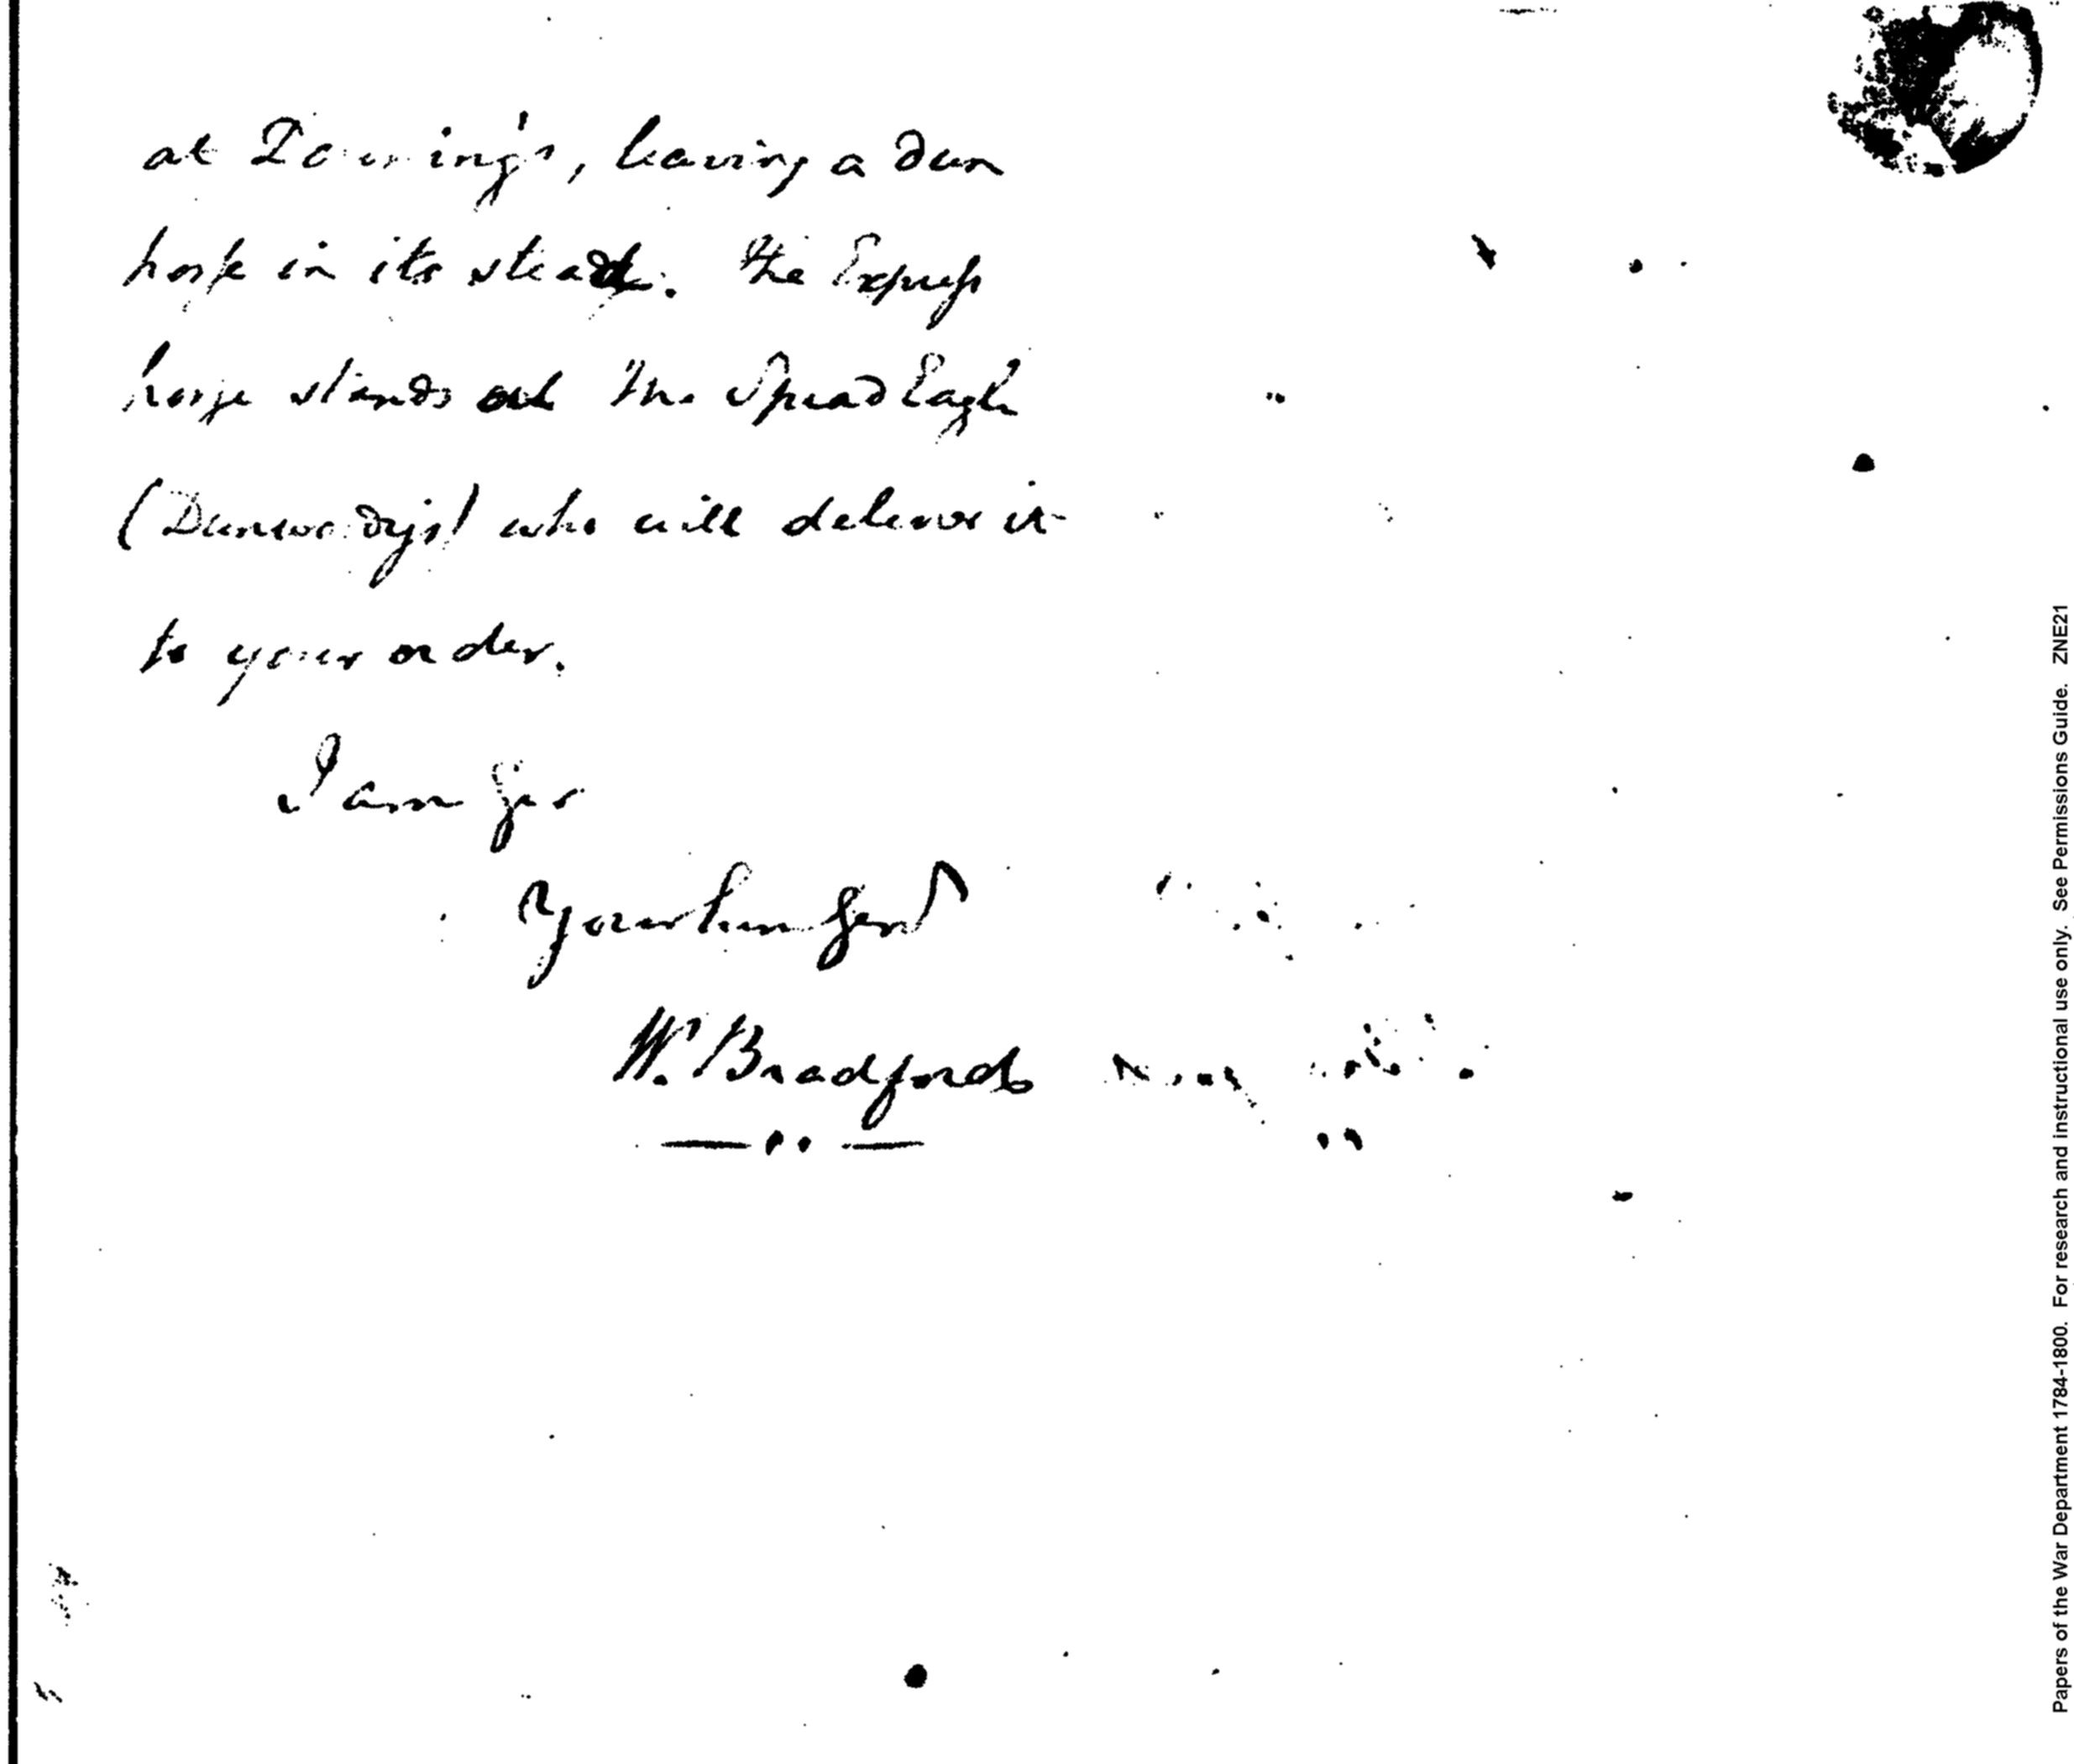 at Downing's, leaving a dun
horse in its stead. The Express
horse stands at the Spread Eagle
(Dunwoody's) who will deliver it
to your order.
I am Sir
Your hum Serv
W. Bradford
Papers of the War Department 1784-1800. For research and instructional use only. See Permissions Guide. ZNE21